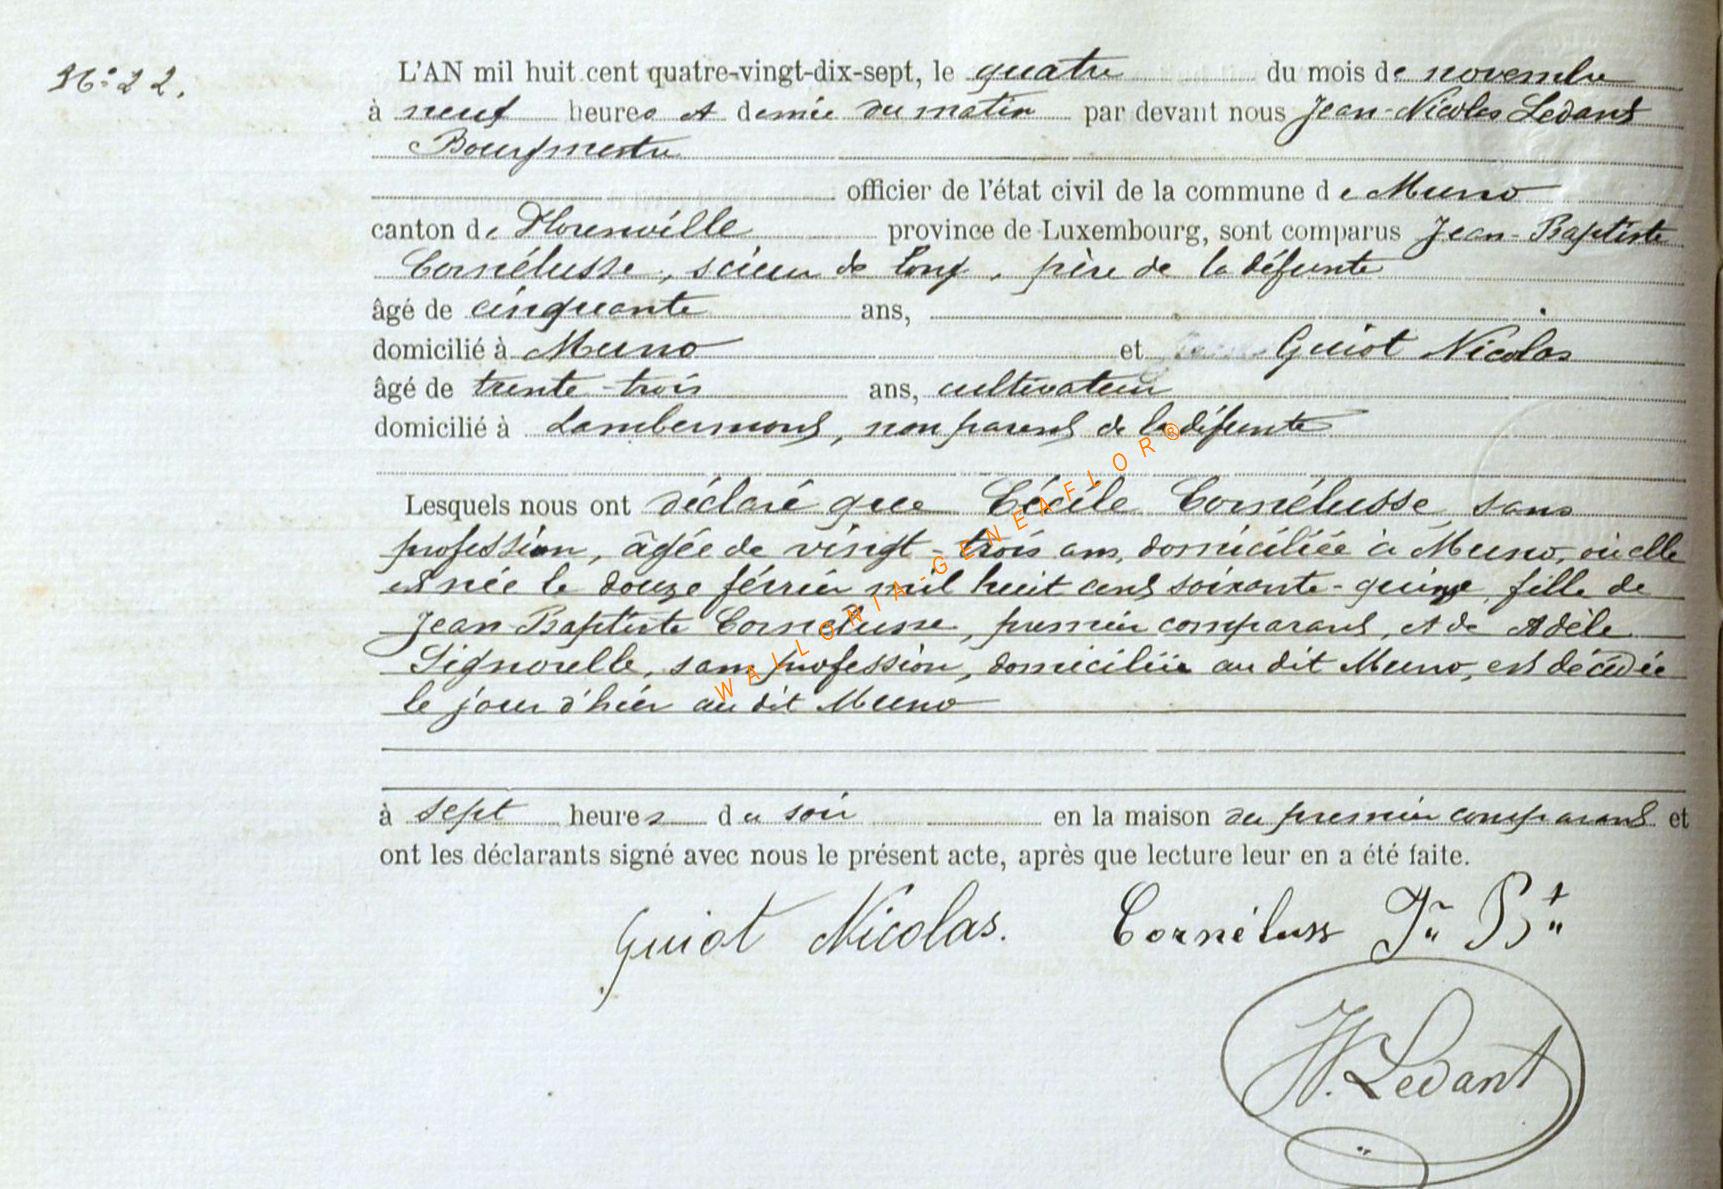 N° 22.
L'AN mil huit cent quatre-vingt-dix-sept, le quatre du mois de novembre
à neuf heures et demie du matin par devant nous Jean-Nicolas Ledant
Bourgmestre
officier de l'état civil de la commune de Muno
canton de Florenville province de Luxembourg, sont comparus Jean-Baptiste
Cornélusse, scieur de long, père de la défunte
âgé de cinquante ans,
domicilié à Muno et Guiot Nicolas
âgé de trente-trois ans, cultivateur
domicilié à Lambermont, non parent de la défunte
Lesquels nous ont déclaré que Cécile Cornélusse, sans
profession, âgée de vingt-trois ans, domiciliée à Muno, où elle
est née le douze février mil huit cent soixante-quinze, fille de
Jean-Baptiste Cornélusse, premier comparant, et de Adèle
Lignorelle, sans profession, domiciliée au dit Muno, est décédée
le jour d'hier au dit Muno
à sept heures du soir en la maison du premier comparant et
ont les déclarants signé avec nous le présent acte, après que lecture leur en a été faite.
Guiot Nicolas. Cornéluss Jn Bt
N. Ledant
WALLONIA-GENEAFLOR®